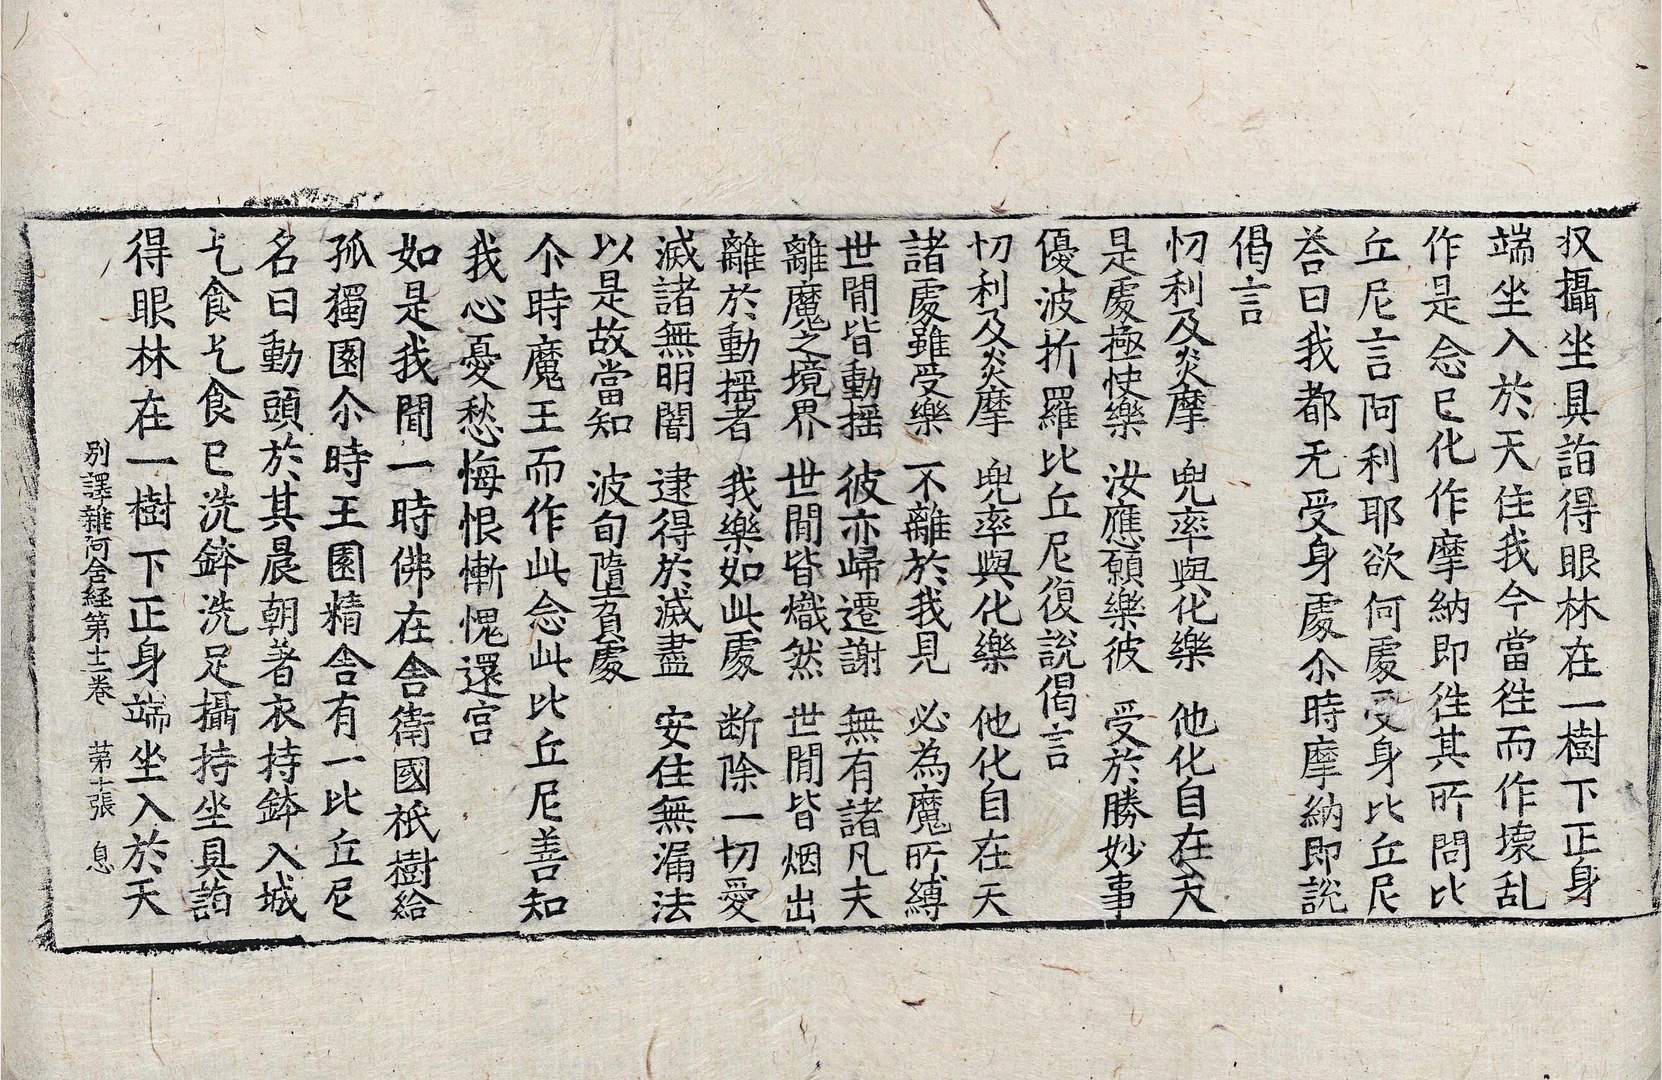 収攝坐具詣得眼林在一樹下正身
端坐入於天住我今當往而作壞乱
作是念已化作摩納即往其所問比
丘尼言阿利耶欲何處受身比丘尼
荅曰我都无受身處尒時摩納即說
偈言
忉利及炎摩 兜率與化樂 他化自在天
是處極快樂 汝應願樂彼 受於勝妙事
優波折羅比丘尼復說偈言
忉利及炎摩 兜率與化樂 他化自在天
諸處雖受樂 不離於我見 必為魔所縛
世閒皆動揺 彼亦歸遷謝 無有諸凡夫
離魔之境界 世閒皆熾然 世閒皆烟出
離於動揺者 我樂如此處 断除一切愛
滅諸無明闇 逮得於滅盡 安住無漏法
以是故當知 波旬墮負處
尒時魔王而作此念此比丘尼善知
我心憂愁悔恨慚愧還宮
如是我聞一時佛在舍衛國祇樹給
孤獨園尒時王園精舍有一比丘尼
名曰動頭於其晨朝著衣持鉢入城
乞食乞食已洗鉢洗足攝持坐具詣
得眼林在一樹下正身端坐入於天
別譯雜阿含経第十二卷 第十張 息